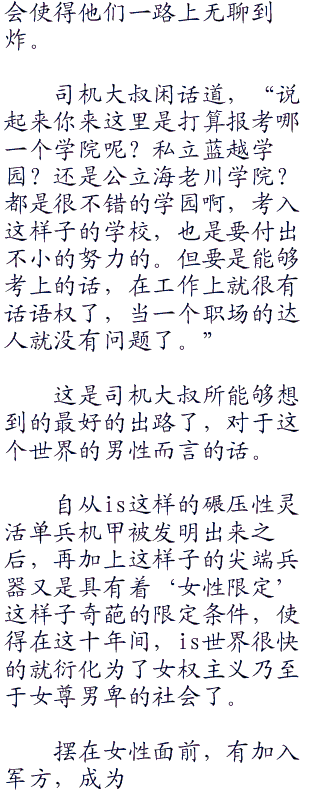 会使得他们一路上无聊到
炸。
司机大叔闲话道，“说
起来你来这里是打算报考哪
一个学院呢？私立蓝越学
园？还是公立海老川学院？
都是很不错的学园啊，考入
这样子的学校，也是要付出
不小的努力的。但要是能够
考上的话，在工作上就很有
话语权了，当一个职场的达
人就没有问题了。”
这是司机大叔所能够想
到的最好的出路了，对于这
个世界的男性而言的话。
自从is这样的碾压性灵
活单兵机甲被发明出来之
后，再加上这样子的尖端兵
器又是具有着‘女性限定’
这样子奇葩的限定条件，使
得在这十年间，is世界很快
的就衍化为了女权主义乃至
于女尊男卑的社会了。
摆在女性面前，有加入
军方，成为